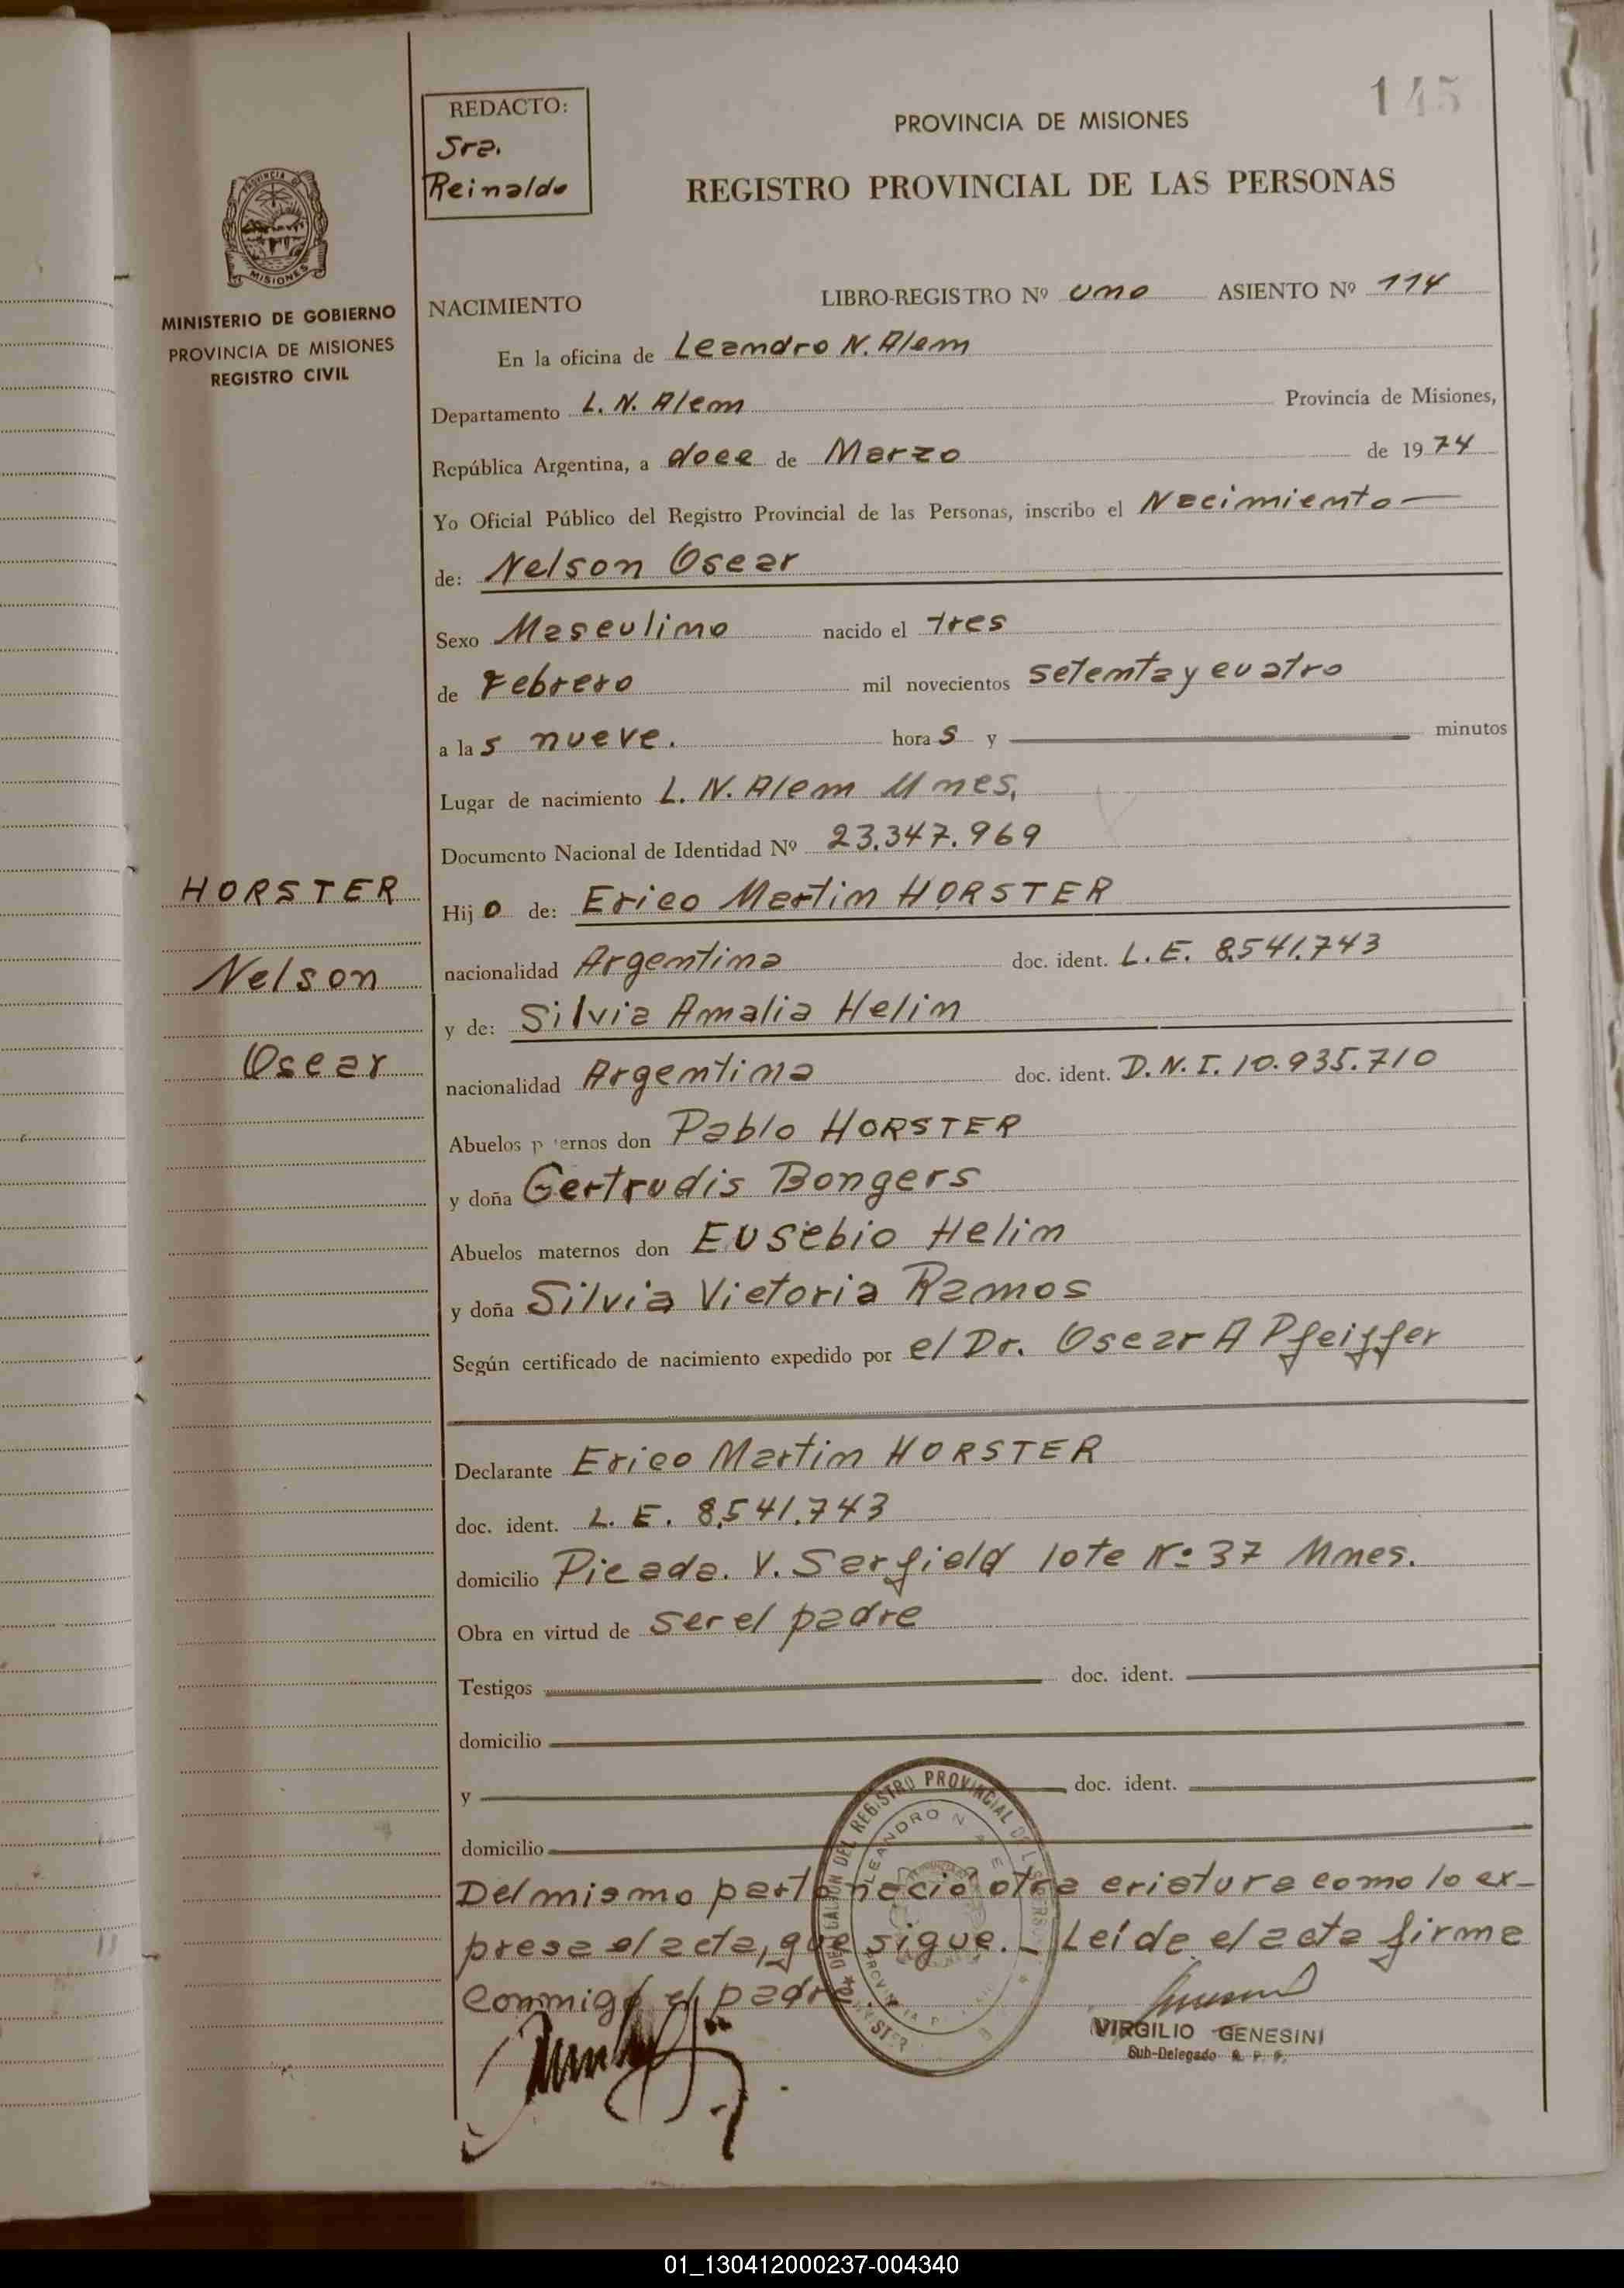 145
REDACTO:
Sra.
Reinaldo
PROVINCIA DE MISIONES
REGISTRO PROVINCIAL DE LAS PERSONAS
PROVINCIA
MISIONES
MINISTERIO DE GOBIERNO
PROVINCIA DE MISIONES
REGISTRO CIVIL
NACIMIENTO LIBRO-REGISTRO Nº uno ASIENTO Nº 114
En la oficina de Leandro N. Alem
Departamento L. N. Alem Provincia de Misiones,
República Argentina, a doce de Marzo de 1974
Yo Oficial Público del Registro Provincial de las Personas, inscribo el Nacimiento
de: Nelson Oscar
Sexo Masculino nacido el tres
de Febrero mil novecientos setenta y cuatro
a las nueve. horas y minutos
Lugar de nacimiento L. N. Alem Mnes,
Documento Nacional de Identidad Nº 23.347.969
HORSTER
Hijo de: Erico Martin HORSTER
Nelson
nacionalidad Argentina doc. ident. L.E. 8.541.743
y de: Silvia Amalia Helin
Oscar
nacionalidad Argentina doc. ident. D.N.I. 10.935.710
Abuelos p ernos don Pablo HORSTER
y doña Gertrudis Bongers
Abuelos maternos don Eusebio Helin
y doña Silvia Victoria Ramos
Según certificado de nacimiento expedido por el Dr. Oscar A Pfeiffer
Declarante Erico Martin HORSTER
doc. ident. L. E. 8.541.743
domicilio Picada. V. Sarfield lote Nº 37 Mnes.
Obra en virtud de ser el padre
Testigos doc. ident.
domicilio
y doc. ident.
domicilio
Del mismo parto nació otra criatura como lo ex-
presa el acta, que sigue. - Leída el acta firma
conmigo el padre.
DELEGACION DEL REGISTRO PROVINCIAL DE
LEANDRO N
VIRGILIO GENESINI
Sub-Delegado R. P. P.
01_130412000237-004340